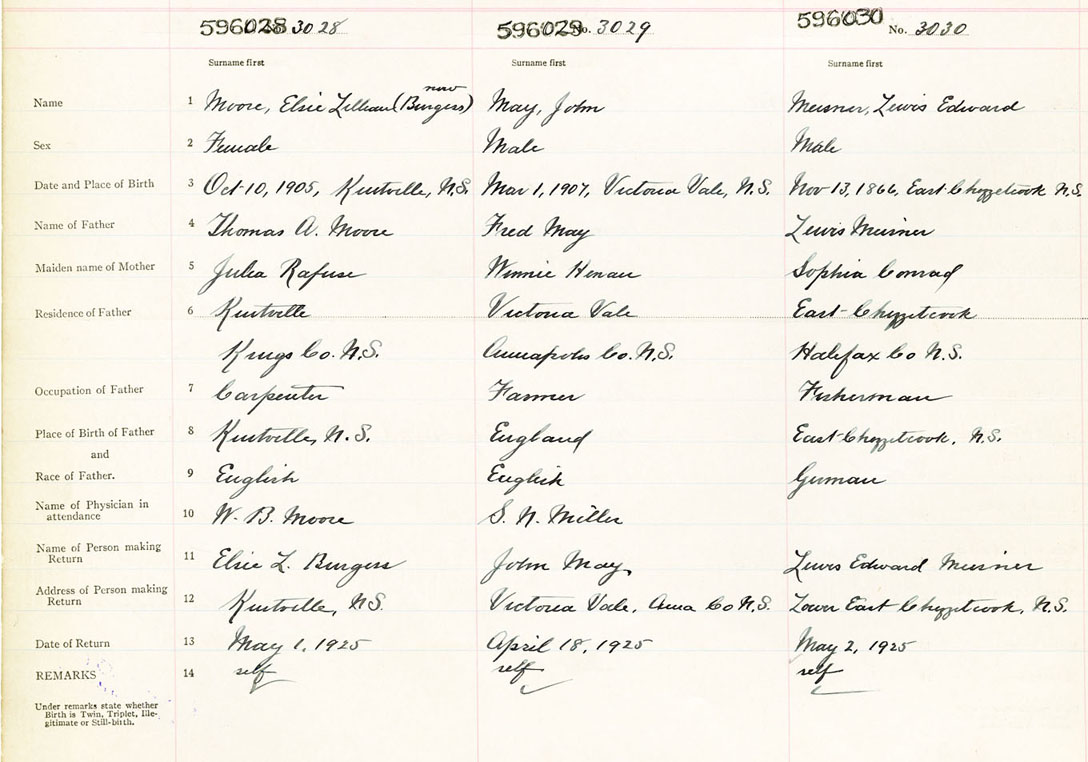 596028 3028 596029 No. 3029 596030 No. 3030
Surname first Surname first Surname first
now
Name 1 Moore, Elsie Lillian (Burgess) May, John Meisner, Lewis Edward
Sex 2 Female Male Male
Date and Place of Birth 3 Oct 10, 1905, Kentville, N.S. Mar 1, 1907, Victoria Vale, N.S. Nov 13, 1866, East Chezzetcook N.S.
Name of Father 4 Thomas A. Moore Fred May Lewis Meisner
Maiden name of Mother 5 Julia Rafuse Winnie Sophia Conrad
Residence of Father 6 Kentville Victoria Vale East Chezzetcook
Kings Co. N.S. Annapolis Co. N.S. Halifax Co N.S.
Occupation of Father 7 Carpenter Farmer Fisherman
Place of Birth of Father 8 Kentville, N.S. England East Chezzetcook, N.S.
and
Race of Father. 9 English English German
Name of Physician in
attendance 10 W. B. Moore S. N. Miller
Name of Person making
Return 11 Elsie L. Burgess John May Lewis Edward Meisner
Address of Person making
Return 12 Kentville, N.S. Victoria Vale, Anna Co N.S. Lower East Chezzetcook, N.S.
Date of Return 13 May 1, 1925 April 18, 1925 May 2, 1925
REMARKS 14 self self self
Under remarks state whether
Birth is Twin, Triplet, Ille-
gitimate or Still-birth.